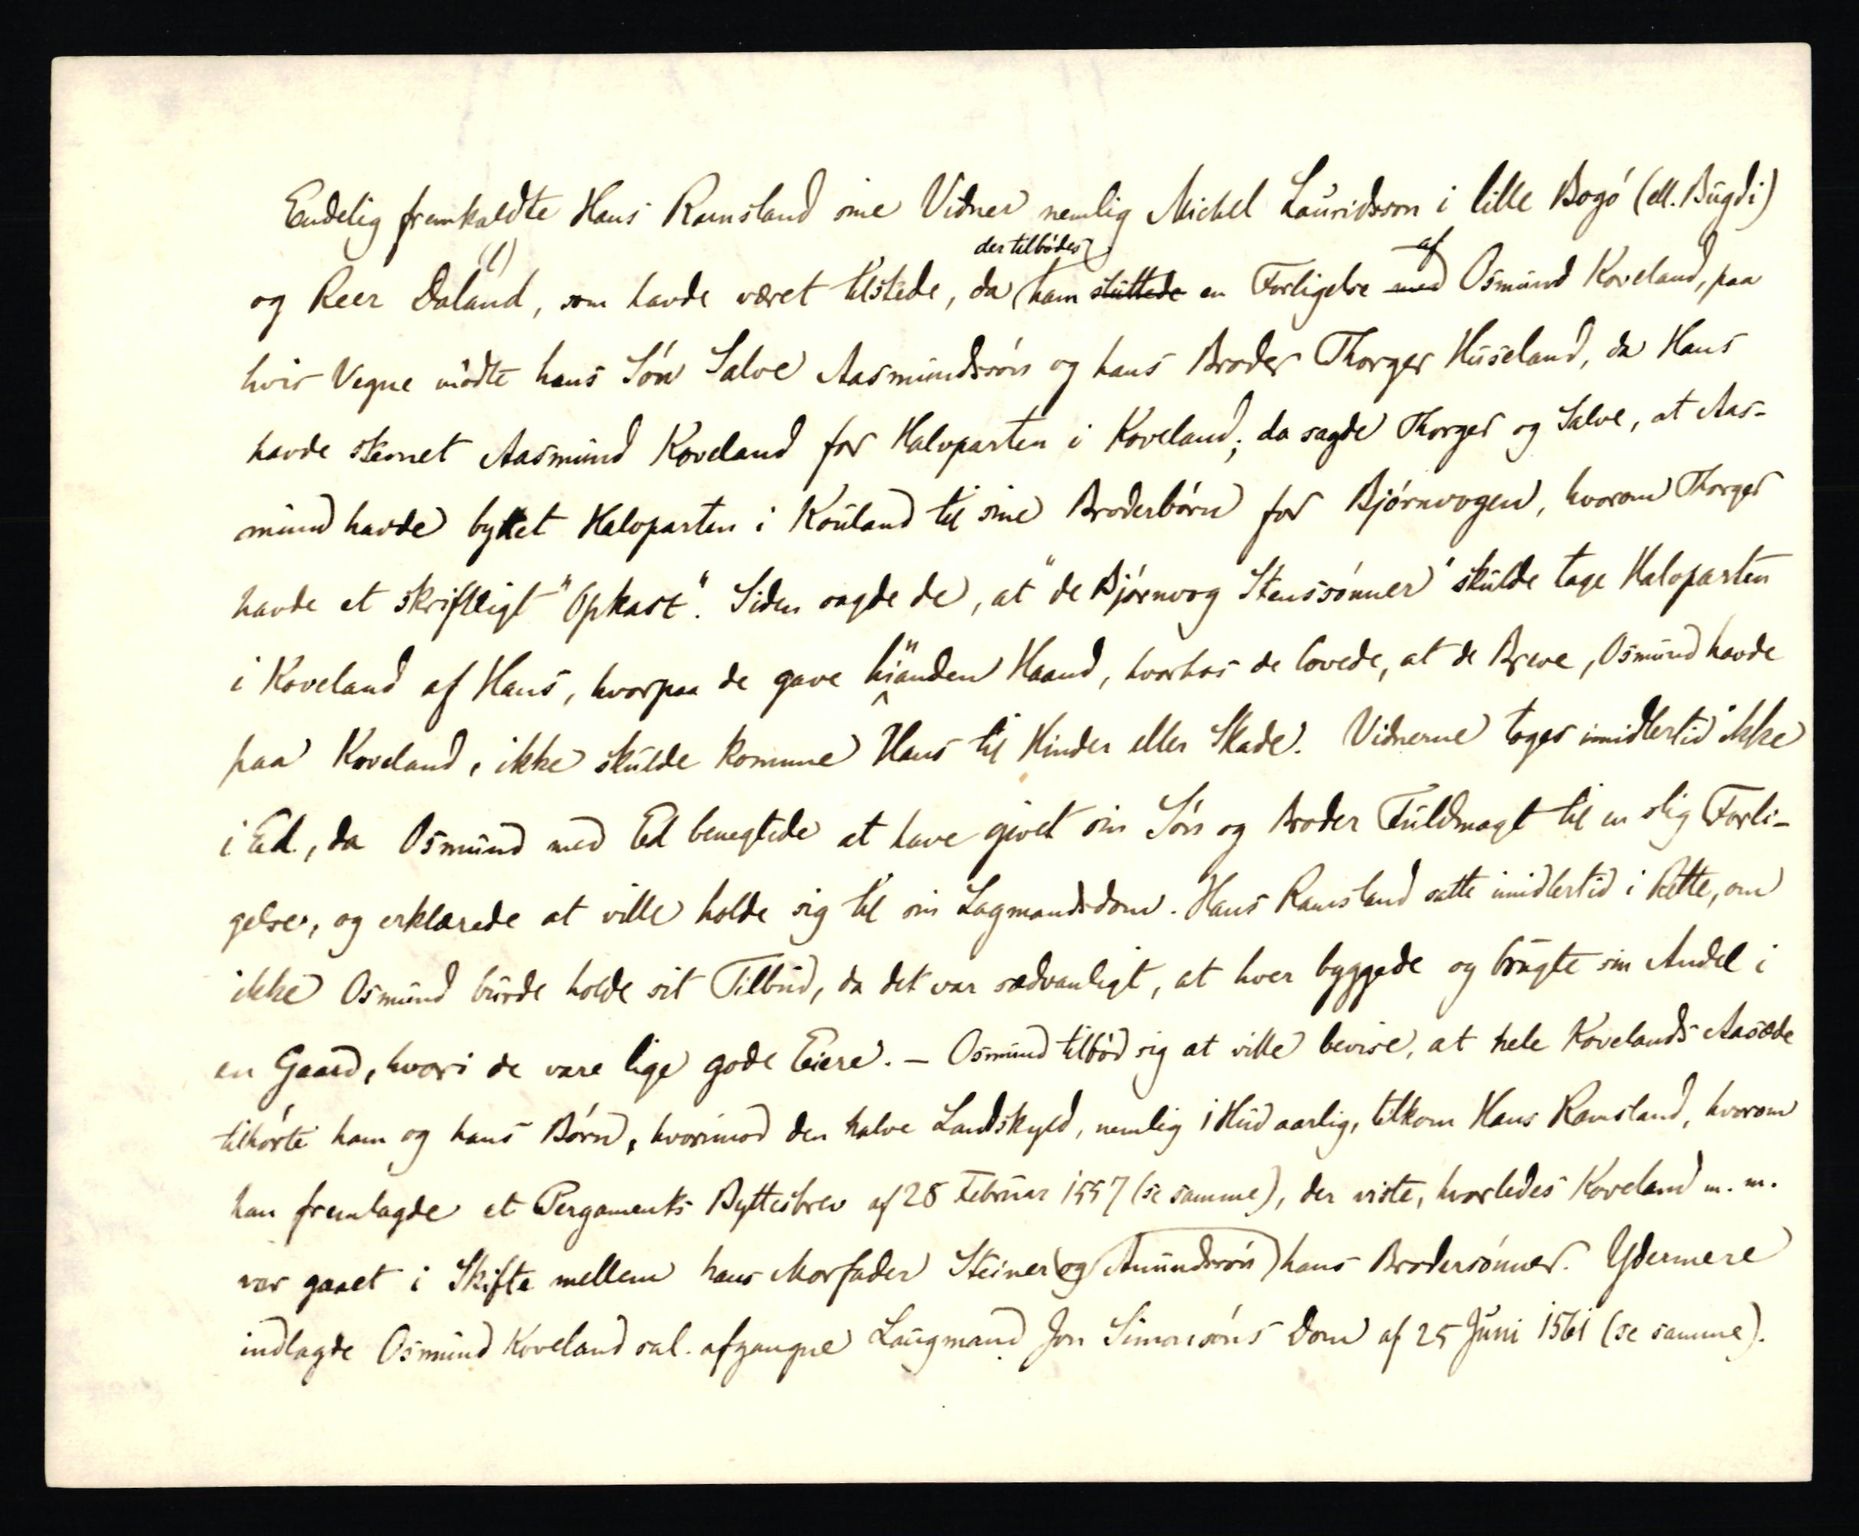 Endelig fremkaldte Hans Ramsland sine Vidner nemlig Michel Lauridsson i lille Bogó (ell. Bugdi)
(l)
der tilbódes
af
og Reer Daland, som havde været tilstede, da ham sluttede en Forligelse med Osmund Koveland, paa
hvis Vegne mödte hans Són Salve Aasmundssón og hans Broder Thorger Huseland, da Hans
havde stevnet Aasmund Koveland for Halvparten i Koveland; da sagde Thorger og Salve, at Aas-
mund havde byttet Halvparten i Kouland til sine Broderbórn for Bjórnvogen, hvorom Thorger
havde et skriftligt "Opkast". Siden sagde de, at "de Bjórnvog Stenssónner" skulde tage Halvparten
i Koveland af Hans, hvorpaa de gave hianden Haand, hvorhos de lovede, at de Breve, Osmund havde
paa Koveland, ikke skulde komme Hans til Hinder eller Skade. Vidnerne toges imidlertid ikke
i Ed, da Osmund med Ed benegtede at have givet sin Són og Broder Fuldmagt til en slig Forli-
gelse, og erklærede at ville holde sig til sin Lagmandsdom. Hans Ramsland satte imidlertid i Rette, om
ikke Osmund burde holde sit Tilbud, da det var sædvanligt, at hver byggede og brugte sin Andel i
en Gaard, hvori de vare lige gode Eiere. – Osmund tilbód sig at ville bevise, at hele Kovelands Aasæde
tilhórte ham og hans Bórn, hvorimod den halve Landskyld, nemlig 1 Hud aarlig, tilkom Hans Ramsland, hvorom
han fremlagde et Pergaments Byttesbrev af 28 Februar 1557 (se samme), der viste, hvorledes Koveland m. m.
var gaaet i Skifte mellem hans Morfader Steiner og Amundssón hans Brodersónner. Ydermere
indlagde Osmund Koveland sal. afgangne Laugmand Jon Simonsóns Dom af 25 Juni 1561 (se samme).